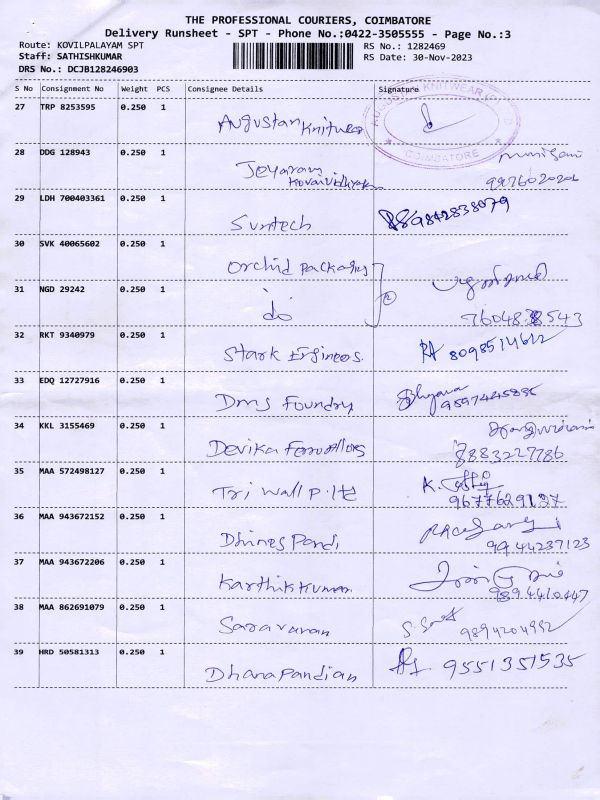 THE PROFESSIONAL COURIERS, COIMBATORE
Delivery Runsheet - SPT - Phone No.:0422-3505555 - Page No.:3
Route: KOVILPALAYAM SPT
RS No.: 1282469
Staff: SATHISHKUMAR
RS Date: 30-Nov-2023
DRS No.: DCJB128246903
S No Consignment No Weight PCS Consignee Details Signature
27 TRP 8253595 0.250 1
Augustan Knitwear
COIMBATORE
28 DDG 128943 0.250 1
Jeyaram
29 LDH 700403361 0.250 1
Suntech
9842838079
30 SVK 40065602 0.250 1
Orchid Packages
31 NGD 29242 0.250 1
do
2
32 RKT 9340979 0.250 1
Stark Engineos.
8098514612
33 EDQ 12727916 0.250 1
Dms Foundry
34 KKL 3155469 0.250 1
Devika
8883227786
35 MAA 572498127 0.250 1
Tri Wall P. ltd
9677629137
36 MAA 943672152 0.250 1
Dhines Pandi
9944237123
37 MAA 943672206 0.250 1
Karthikkumar
9894410447
38 MAA 862691079 0.250 1
Saravanan
9894204992
39 HRD 50581313 0.250 1
Dhanapandian
9551351535